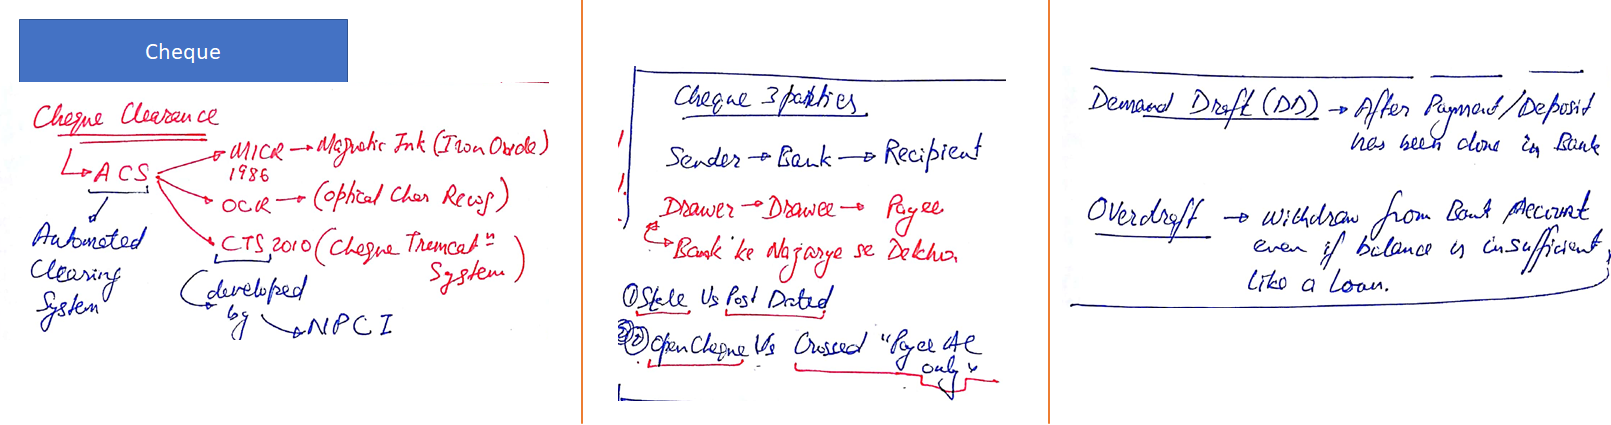 Cheque
Cheque Clearance
ACS
MICR → Magnetic Ink (Iron Oxide)
1986
OCR → (Optical Char Recog)
CTS 2010 (Cheque Truncatn
System)
Automated
Clearing
System
developed
by
NPCI
Cheque 3 parties
Sender → Bank → Recipient
Drawer → Drawee → Payee
Bank ke Najarye se Dekho
① Stale Vs Post Dated
② Open Cheque Vs Crossed "Payee AC
only"
Demand Draft (DD) → After Payment/Deposit
has been done in Bank
Overdraft → withdraw from Bank Account
even if balance is insufficient
like a Loan.